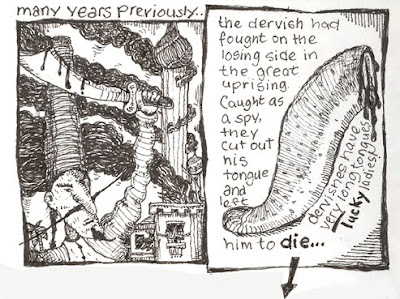 many years previously..
the dervish had
fought on the
losing side in
the great
uprising.
Caught as
a spy,
they
cut out
his
tongue
and
left
him to die...
dervishes have
very long tongues
lucky ladies!